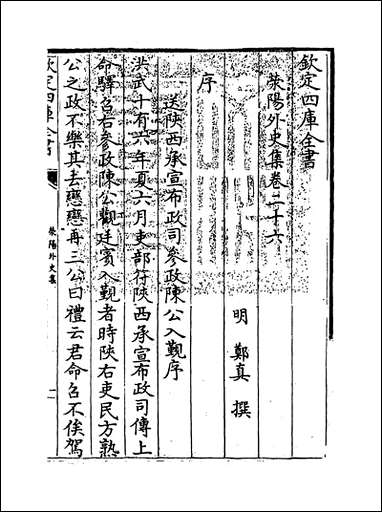 欽定四庫全書
滎陽外史集卷二十六
明 鄭真 撰
序
送陜西承宣布政司參政陳公入覲序
洪武十有六年夏六月吏部符陜西承宣布政司傳上
命驛召右參政陳公觀廷賓入覲者時陜右吏民方熟
公之政不樂其去戀戀再三公曰禮云君命召不俟駕
欽定四庫全書
滎陽外史集
一